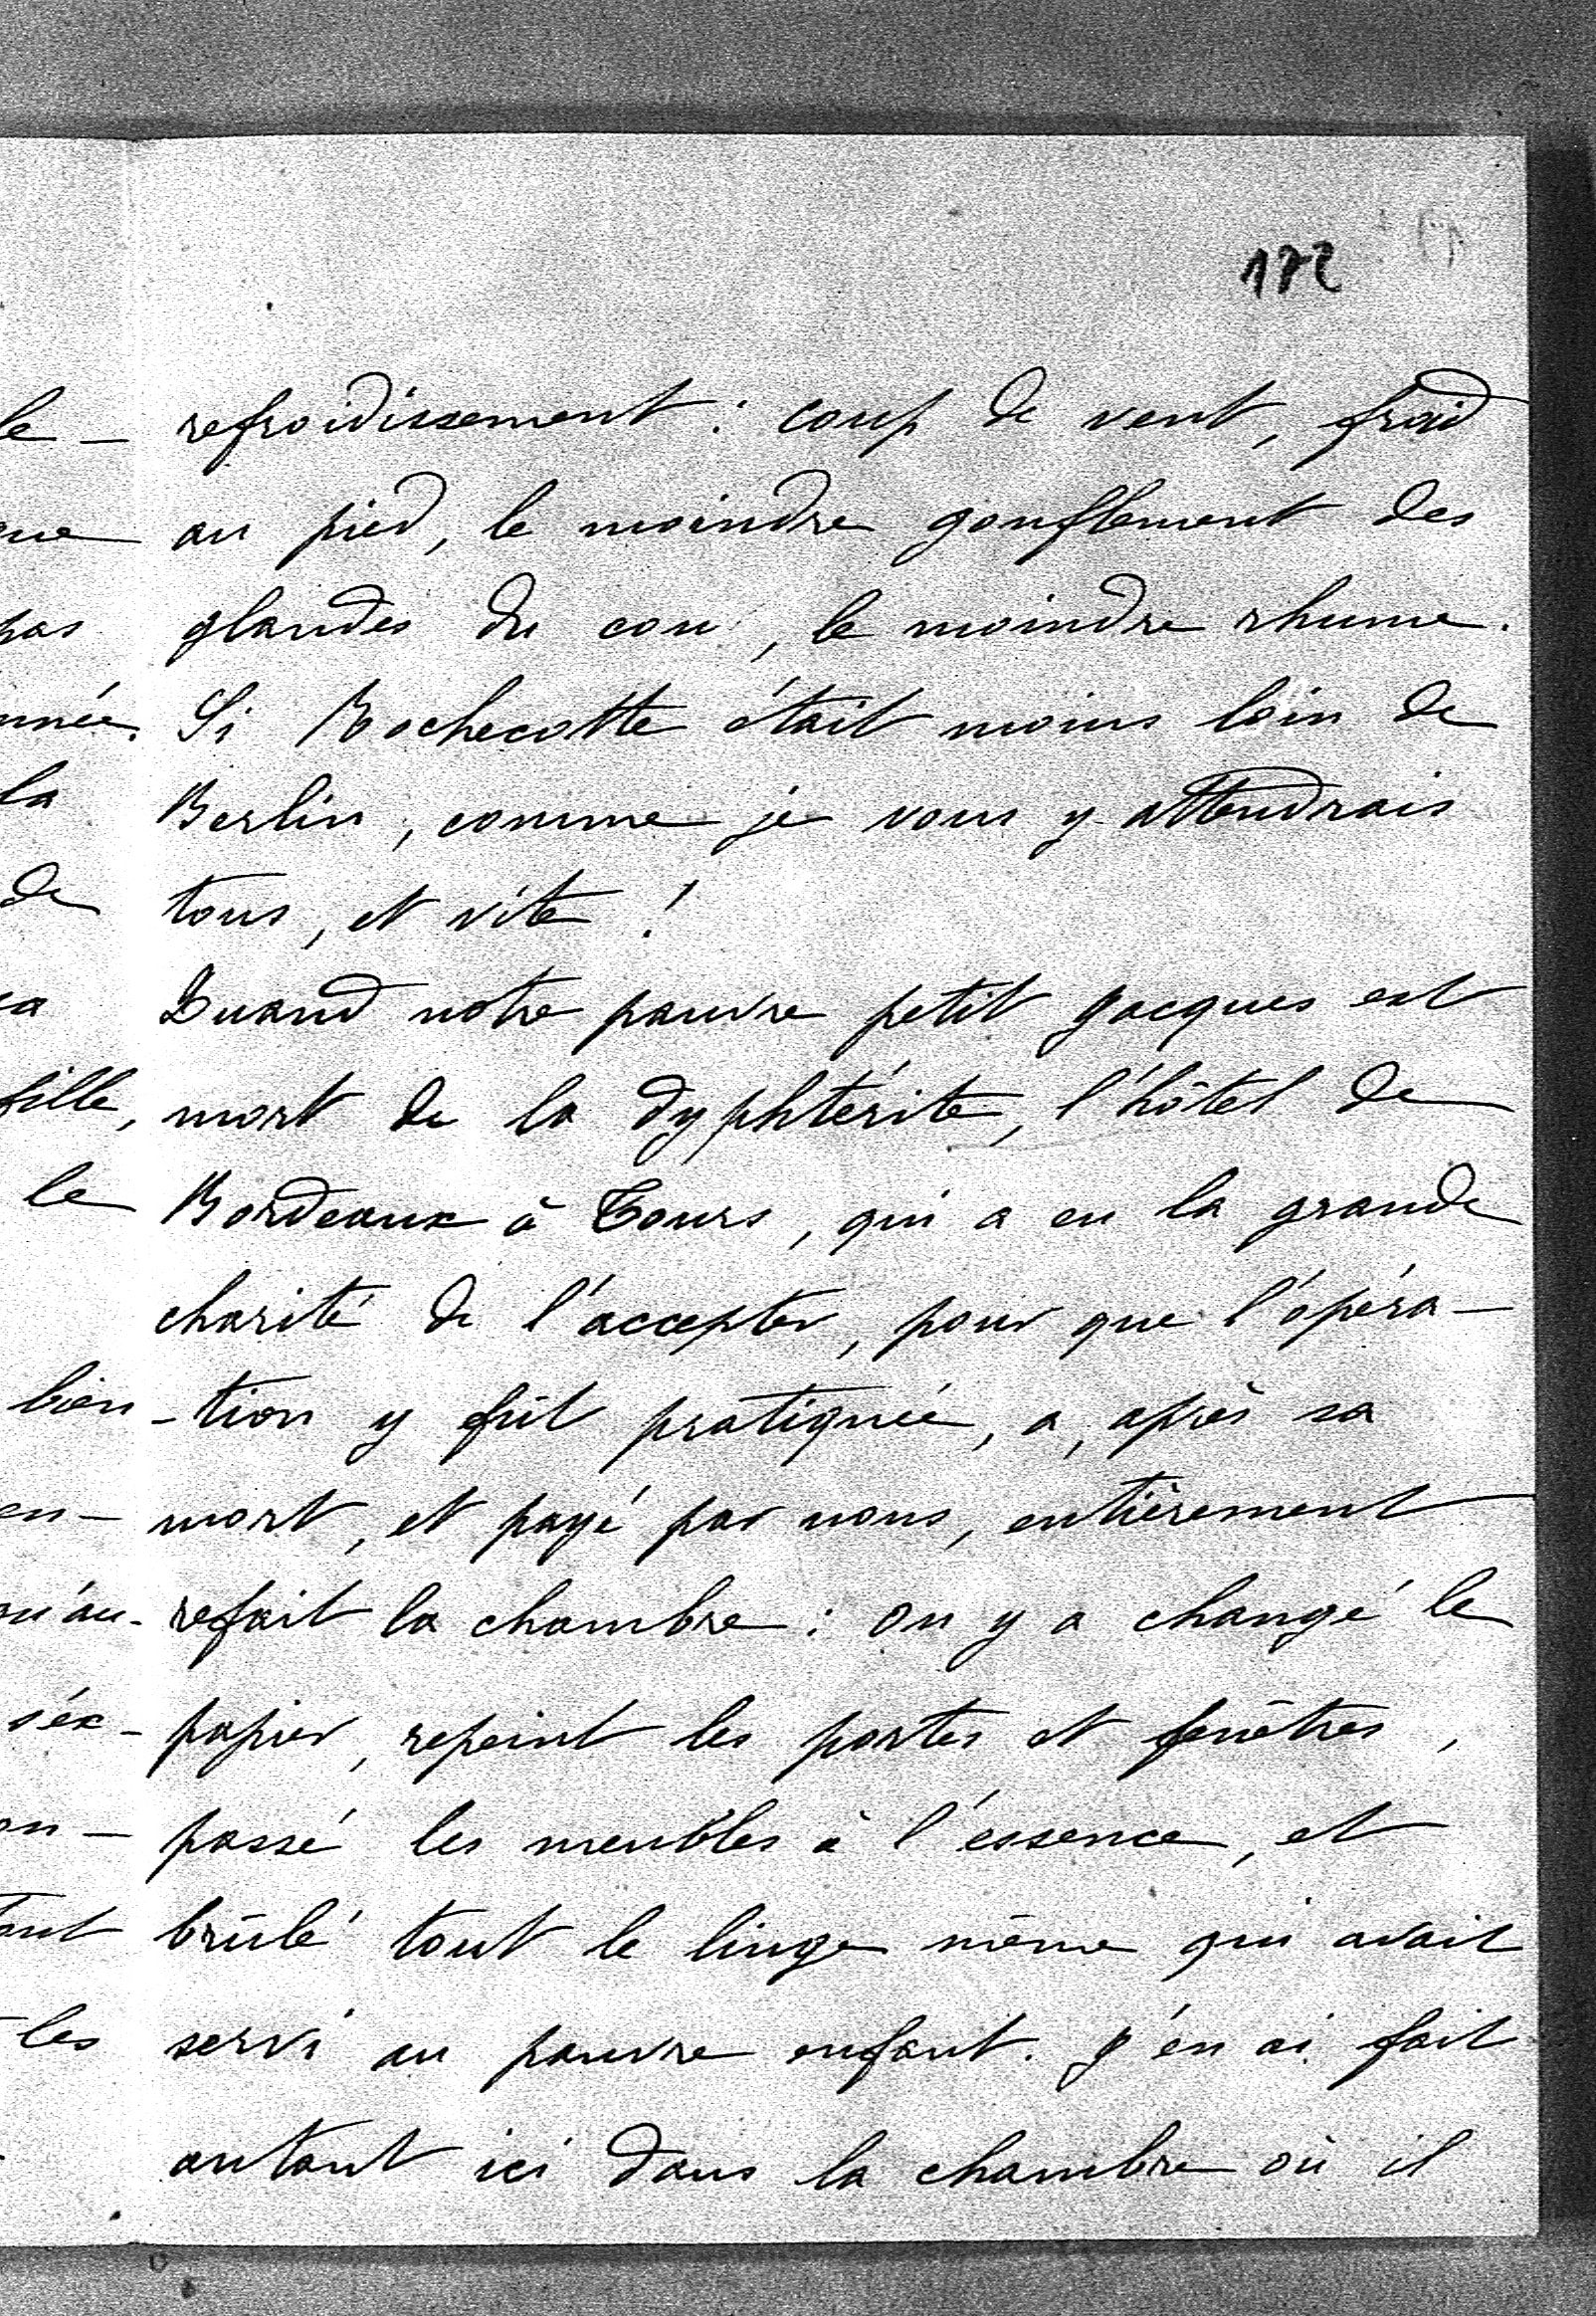 172
refroidissement : coup de vent, froid
au pied, le moindre gonflement des
glandes du cou, le moindre rhume.
Si Rochecotte était moins loin de
Berlin, comme je vous y attendrais
tous, et vite !
Quand notre pauvre petit Jacques est
mort de la dyphtérite, l'hôtel de
Bordeaux à Tours, qui a eu la grande
charité de l'accepter, pour que l'opéra-
-tion y fût pratiquée, a, après sa
mort, et payé par nous, entièrement
refait la chambre : on y a changé le
papier, repeint les portes et fenêtres,
passé les meubles à l'essence, et
brûlé tout le linge même qui avait
servi au pauvre enfant. J'en ai fait
autant ici dans la chambre où il